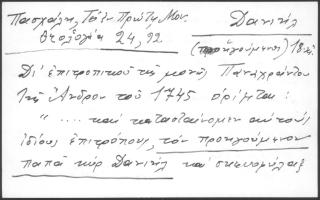 Πασχάλη, Τσὲν Πρώτη Μον.
Θεολογία 24, 92.
Δανιήλ
(προηγούμενος) 18 αἰ.
Δι' ἐπιτροπικοῦ τῆς μονῆς Παναχράντου
τῆς Ἄνδρου τοῦ 1745 ὁρίζεται:
"..... καὶ κατασταίνομεν αὐτοὺς
ἰδίους ἐπιτρόπους, τὸν προηγούμενον
παπᾶ κὺρ Δανιὴλ καὶ σκευοφύλαξ